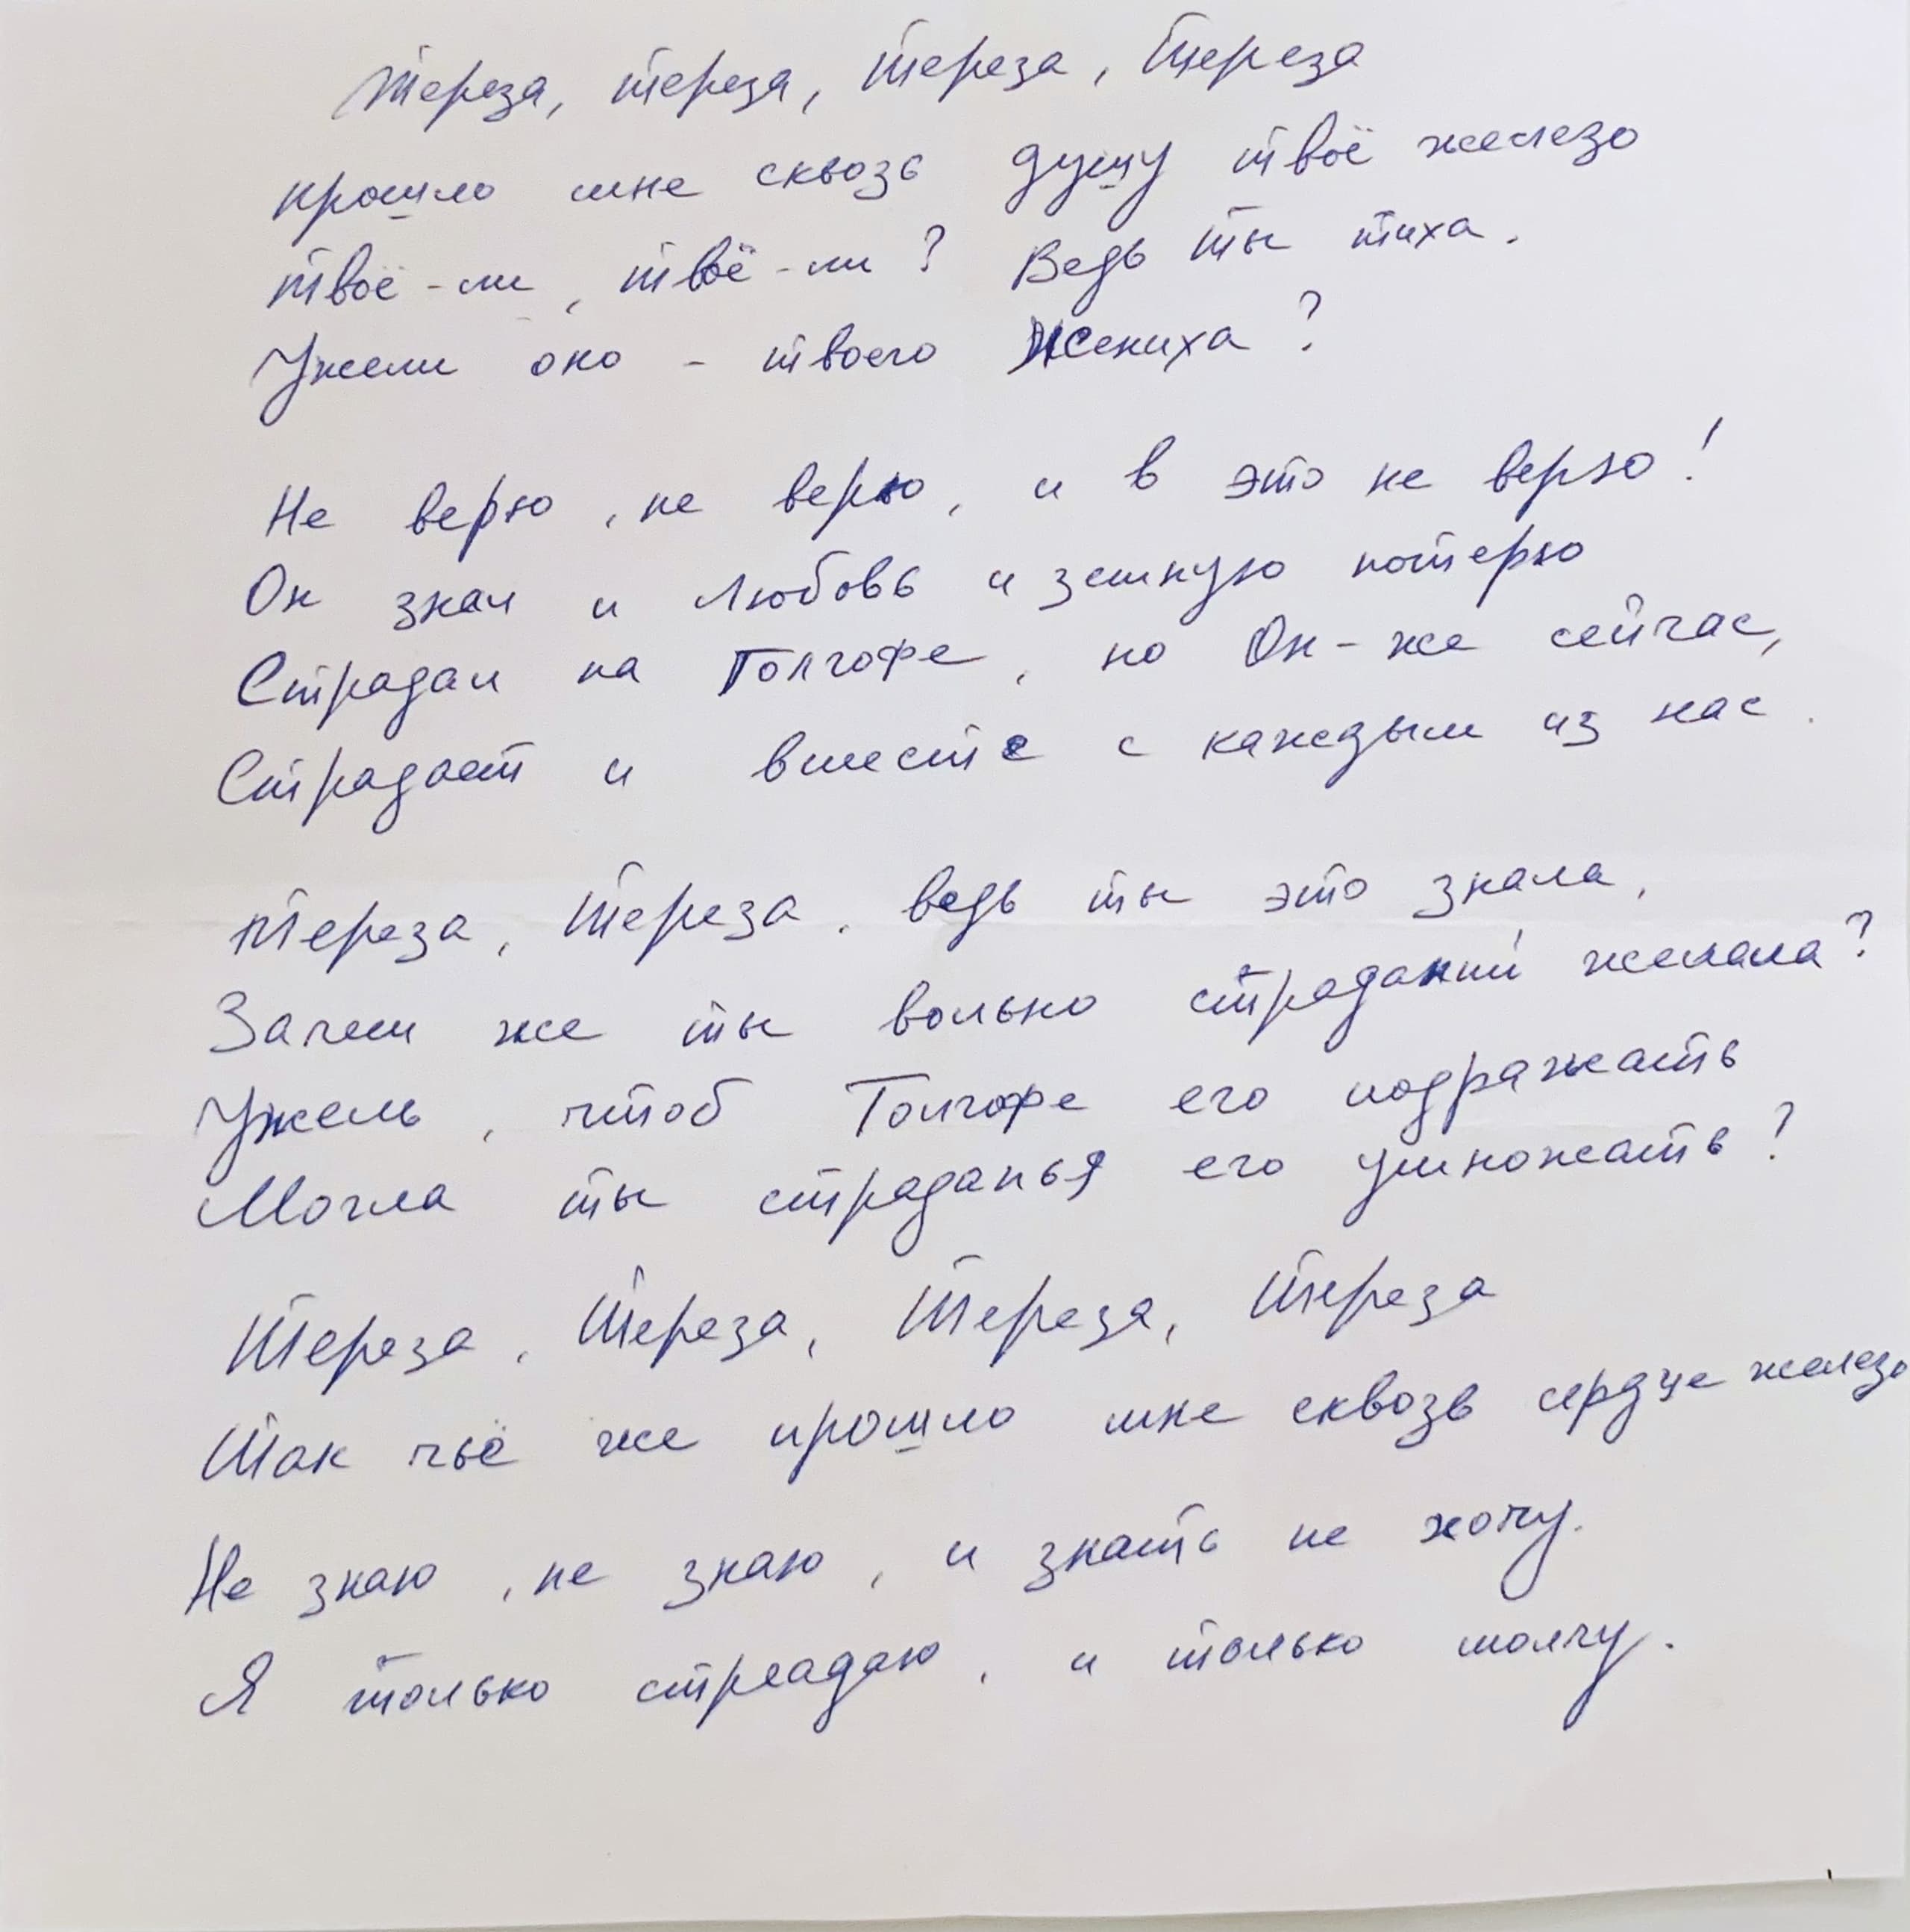 Тереза, тереза, тереза, Тереза
прошло мне сквозь душу твоё железо
твоё-ли, твоё-ли? Ведь ты тиха.
Ужели оно - твоего Жениха?
Не верю, не верю, и в это не верю!
Он знал и Любовь и земную потерю
Страдал на Голгофе, но Он-же сейчас,
Страдает и вместе с каждым из нас.
Тереза, Тереза, ведь ты это знала,
Зачем же ты вольно страданий желала?
Ужель, чтоб Голгофе его подражать
Могла ты страданья его умножать?
Тереза, Тереза, Тереза, Тереза
Так чьё же прошло мне сквозь сердце железо
Не знаю, не знаю, и знать не хочу.
Я только стреадаю, и только молчу.